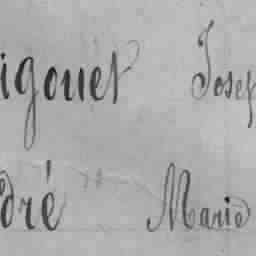 igouet Josep
dré Marie